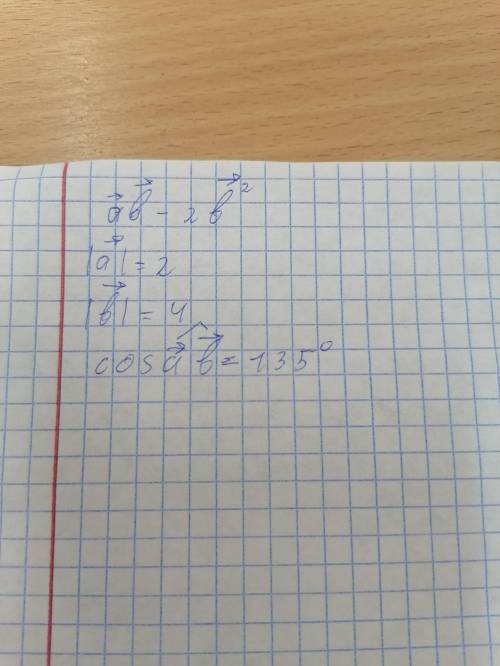 a⃗b⃗ - 2b⃗²
|a⃗| = 2
|b⃗| = 4
cos a⃗^b⃗ = 135°